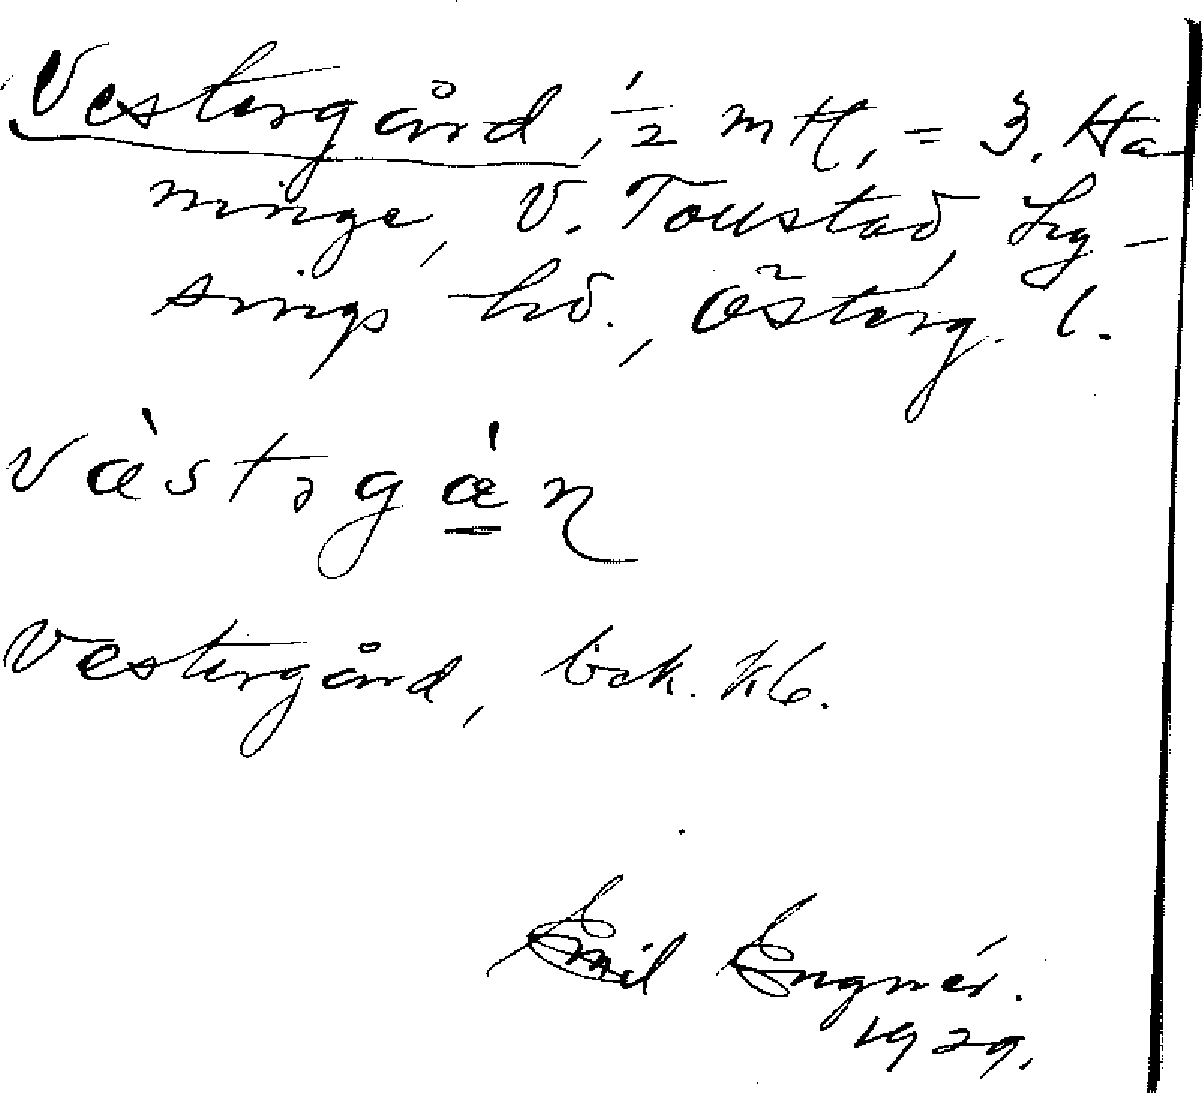 Vestergård, ½ mtl, = 3. Ha-
ninge, V. Tollstad, Ly-
sings hd., Österg. l.
vàstɘgá̱ɳ
Vestergård, bok. Kb.
Emil Engnér.
1929.